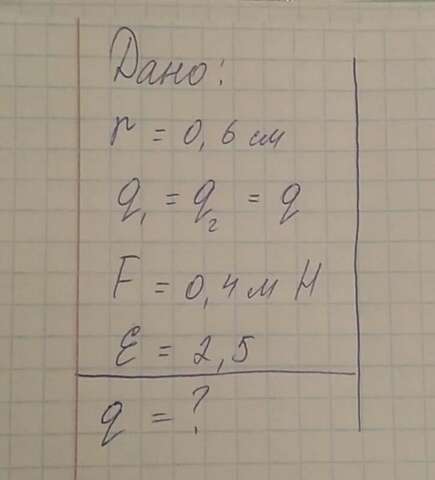 Дано:
r = 0,6 см
q₁ = q₂ = q
F = 0,4 м Н
ε = 2,5
q = ?